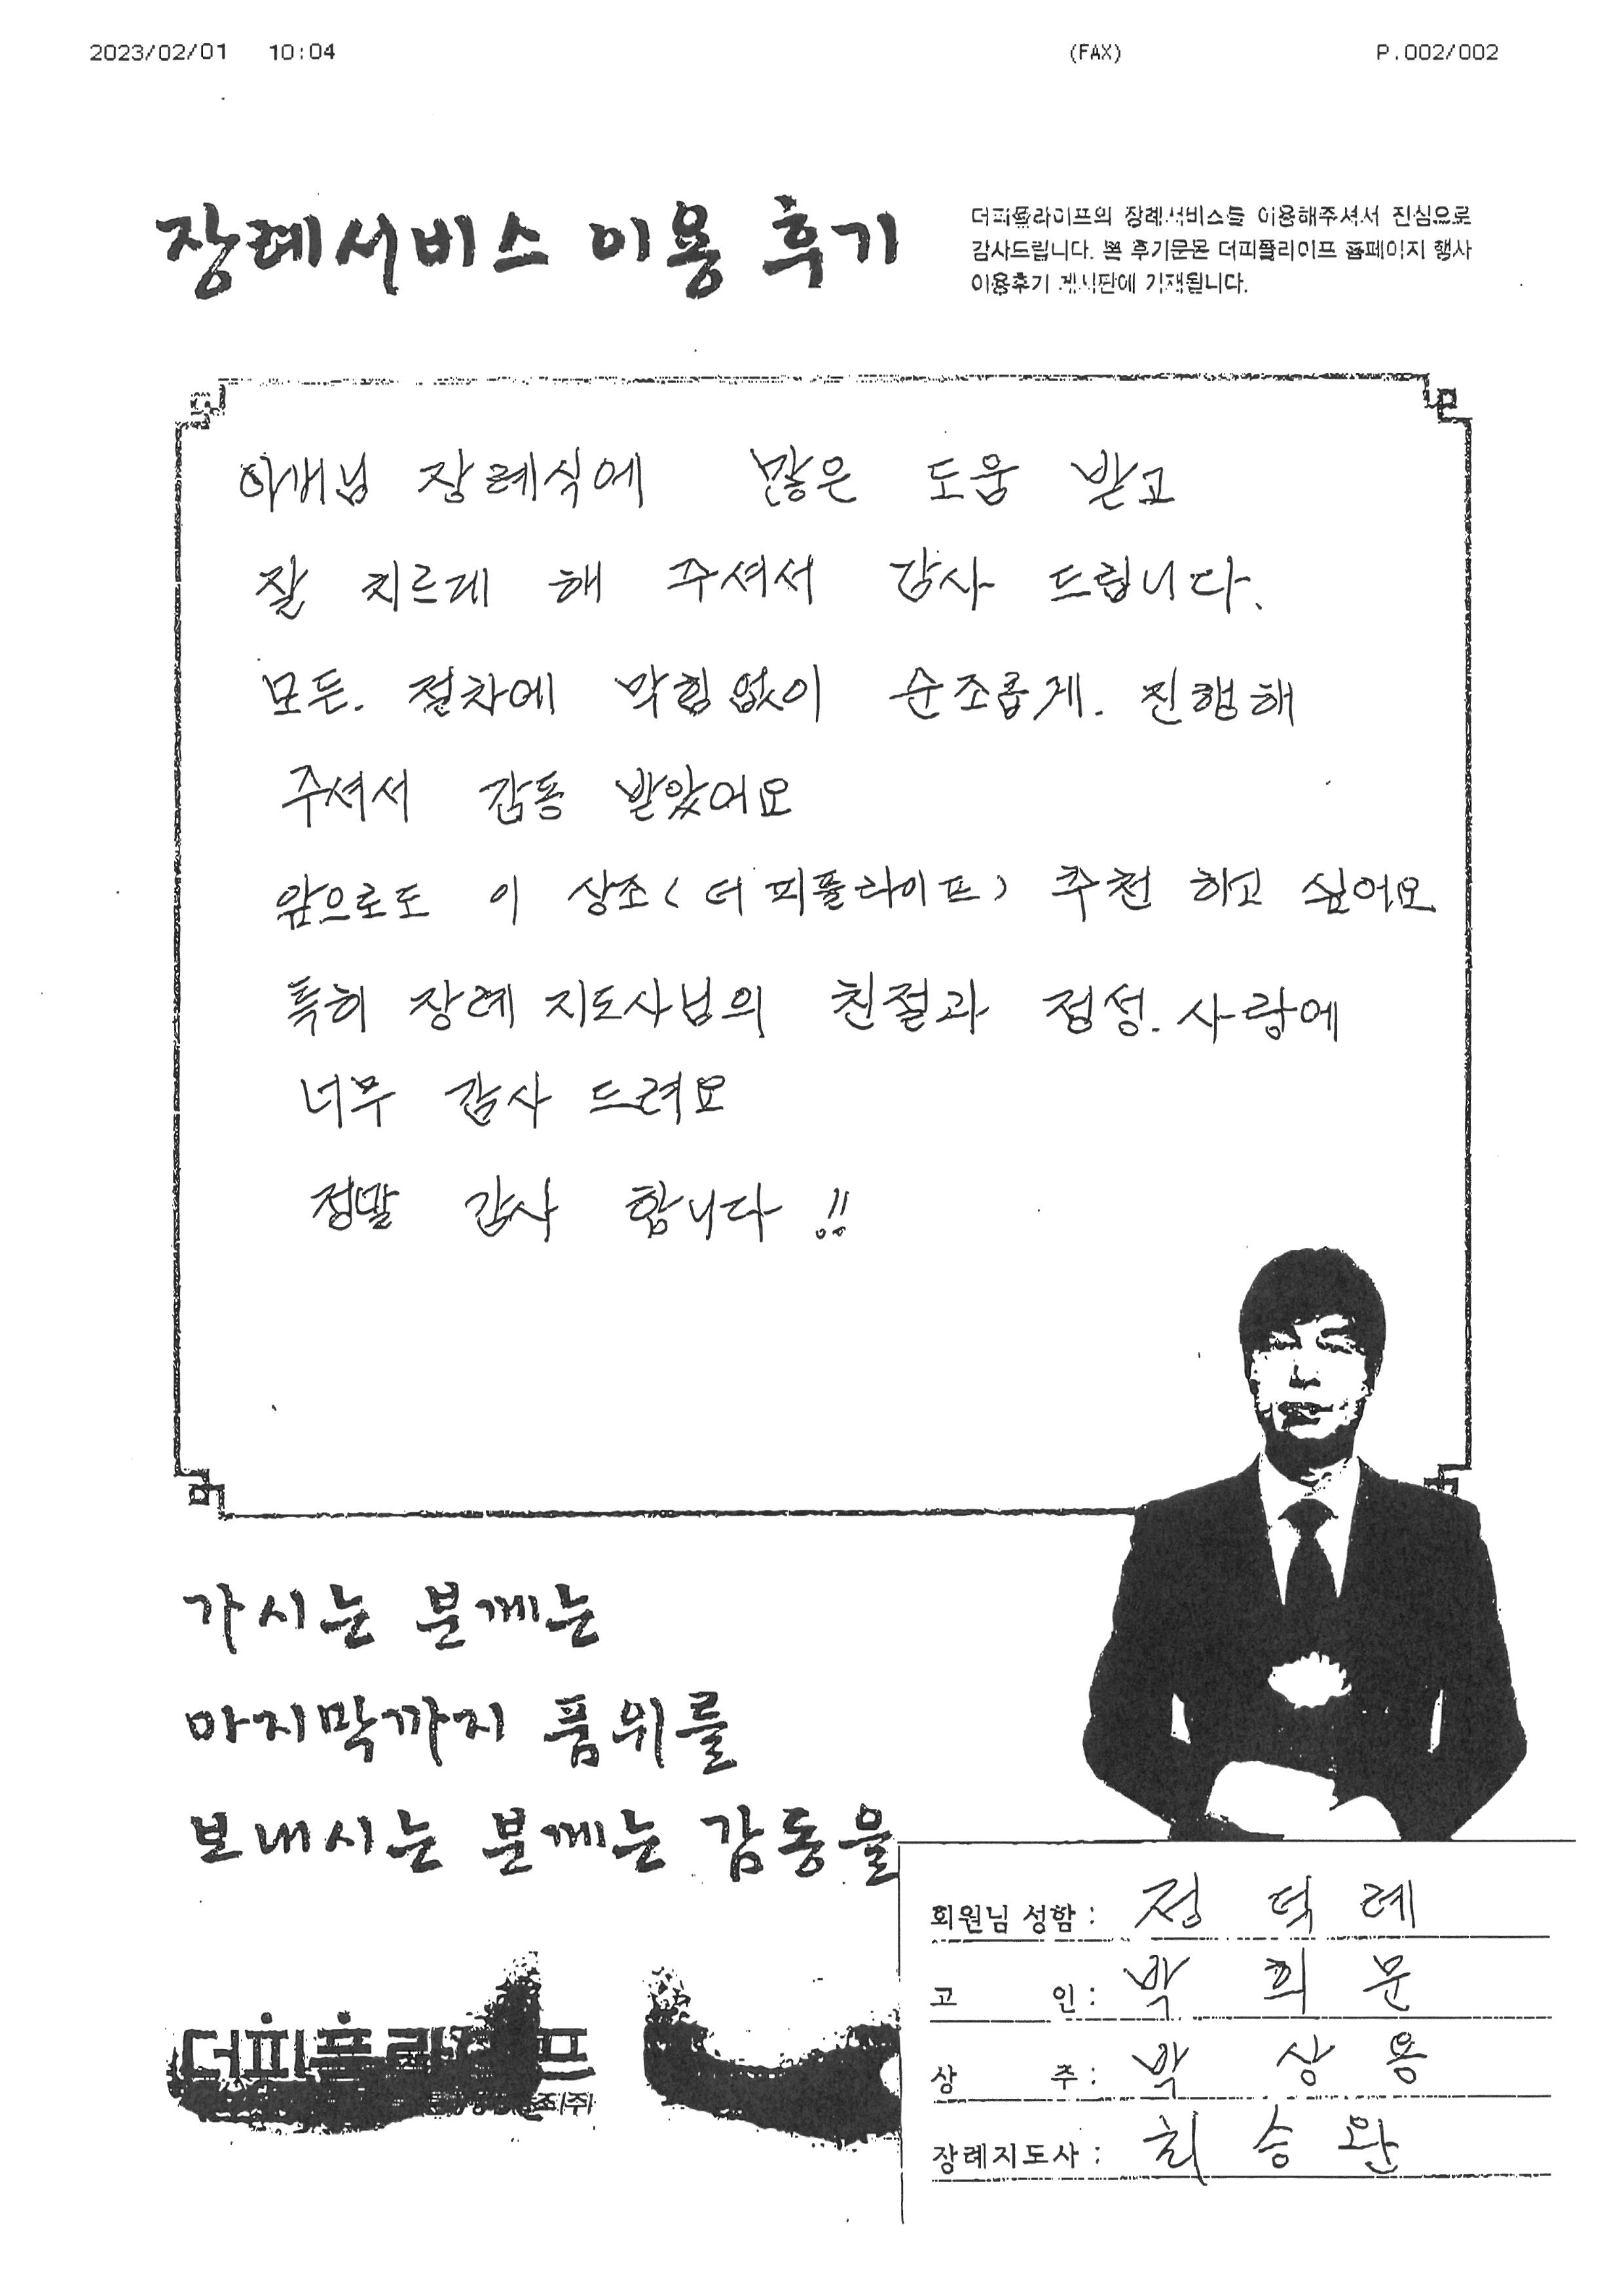 2023/02/01 10:04 (FAX) P.002/002
장례서비스 이용 후기
더피플라이프의 장례서비스를 이용해주셔서 진심으로
감사드립니다. 본 후기문은 더피플라이프 홈페이지 행사
이용후기 게시판에 기재됩니다.
아버님 장례식에 많은 도움 받고
잘 치르게 해 주셔서 감사 드립니다.
모든. 절차에 막힘없이 순조롭게. 진행해
주셔서 감동 받았어요
앞으로도 이 상조(더피플라이프) 추천 하고 싶어요
특히 장례 지도사님의 친절과 정성. 사랑에
너무 감사 드려요
정말 감사 합니다 !!
가시는 분께는
마지막까지 품위를
보내시는 분께는 감동을
더피플라이프
회원님 성함 : 정덕례
고 인 : 박희문
상 주 : 박상용
장례지도사 : 최승완